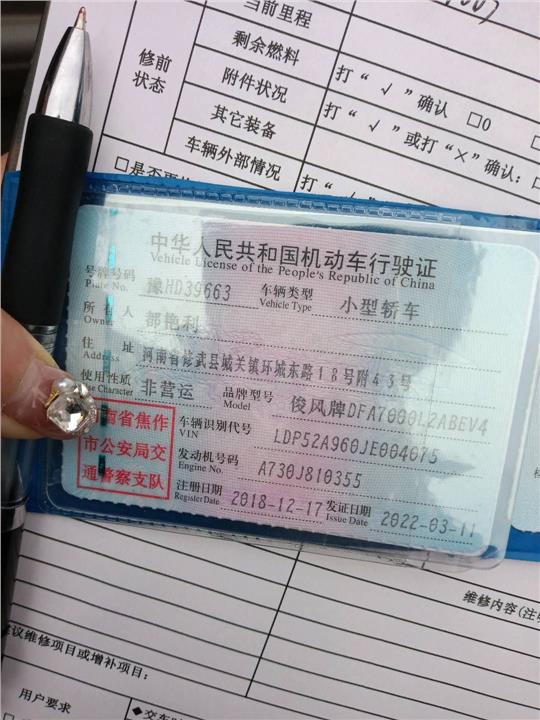 当前里程
剩余燃料
修前
状态
附件状况
打“√”确认 □0
其它装备
打“√”或打“×”确认:□
车辆外部情况
打“√
□是否更
中华人民共和国机动车行驶证
Vehicle License of the People's Republic of China
号牌号码 豫HD39663 车辆类型 小型轿车
Plate No. Vehicle Type
所有人 都艳利
Owner
住址 河南省修武县城关镇环城东路18号附43号
Address
使用性质 非营运 品牌型号 俊风牌DFA7000L2ABEV4
Use Character Model
南省焦作
市公安局交
通警察支队
车辆识别代号 LDP52A960JE004075
VIN
发动机号码 A730J810355
Engine No.
注册日期 2018-12-17 发证日期 2022-03-11
Register Date Issue Date
维修内容(注
议维修项目或增补项目:
用户要求
◆交车时